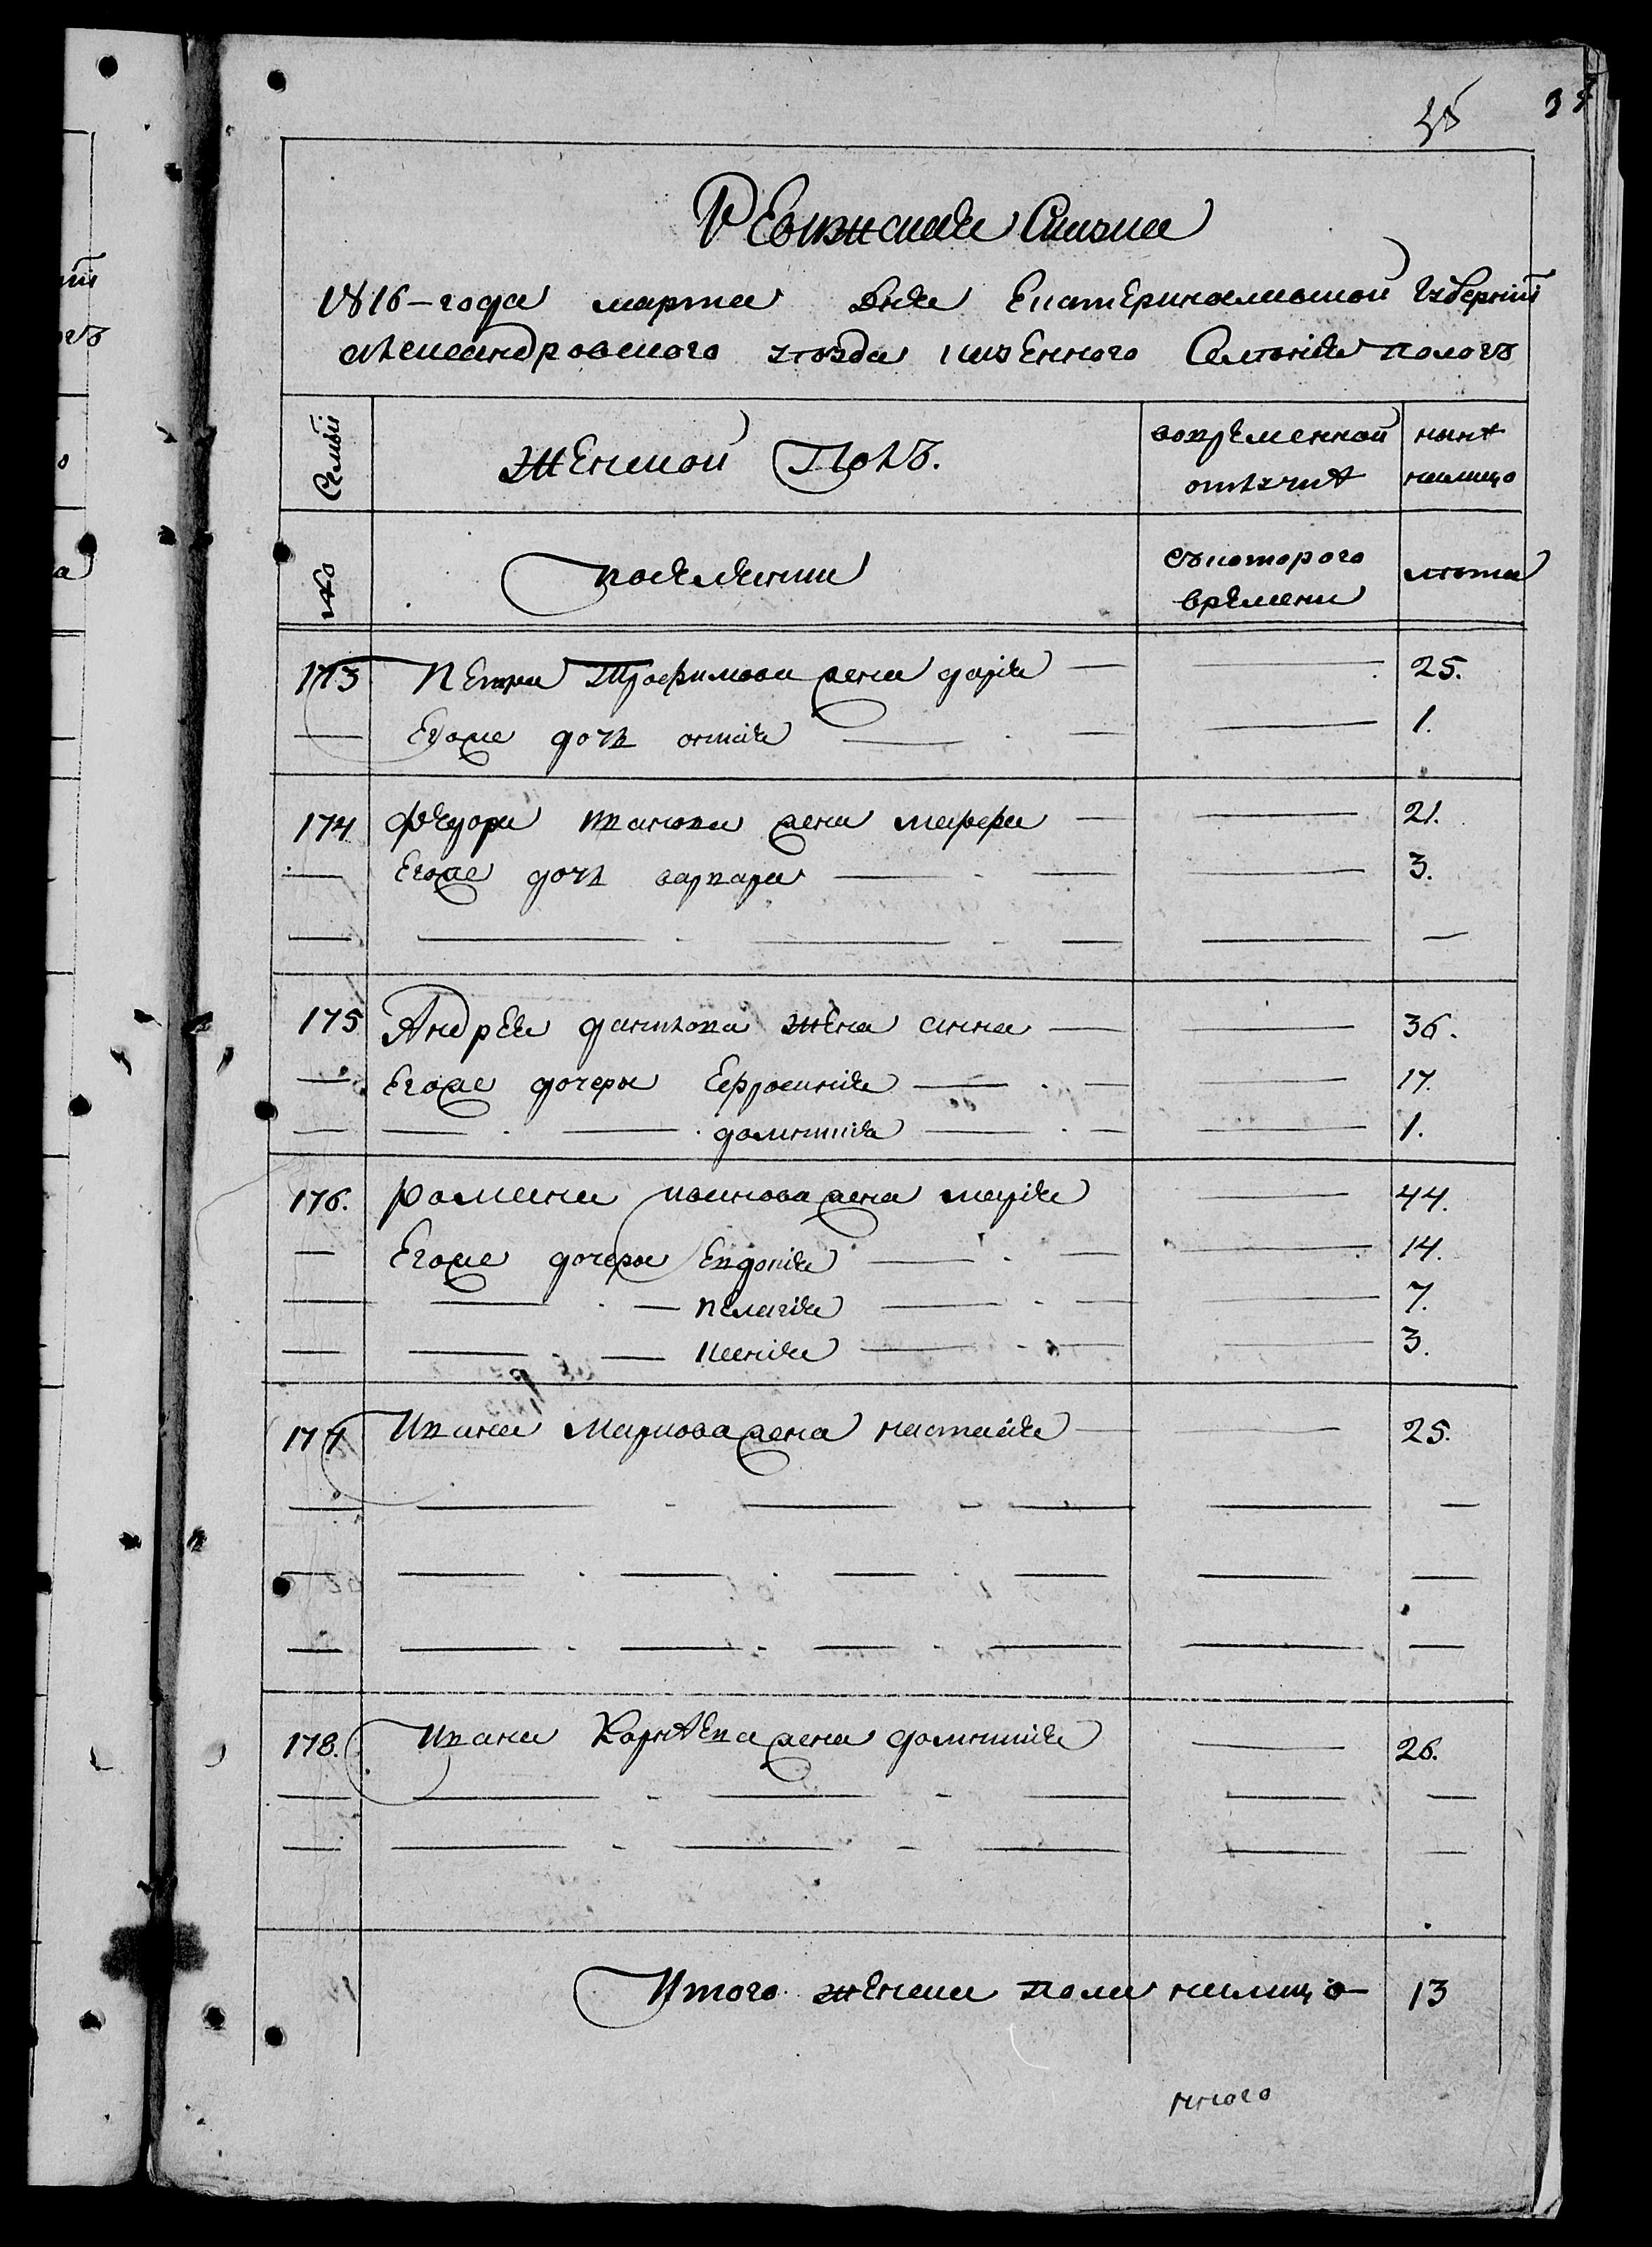 Ревижская Скаска
1816-года марта дня Екатеринославской Губернiи
Александровского уѣзда казенного Селенiя пологъ
Семьи
женской Полъ.
вовременной отлучкѣ
нынѣ налицо
№
поселянки
съкоторого времени
лѣта
173 Петра Трофимова жена дарiя — — 25.
— Егоже дочь — — 1.
174 Федора иванова жена марфа — — 21.
— Егоже дочь варвара — — — 3.
— — — — — —
175 Андрея данилова жена анна — — 36.
— Егоже дочери Ефросинiя — — — 17.
— — — домникiя — — — 1.
176. Романа иванова жена марiя — 44.
— Егоже дочери Евдокiя — — — 14.
— — — пелагiя — — — 7.
— — — Ксенiя — — — 3.
177 Ивана Маркова жена настасiя — — 25.
— — — — — —
— — — — — — —
— — — — — — —
178. Ивана Корнѣева жена домникiя — 26.
— — — — — —
— — — — — —
Итого женска пола налицо — 13